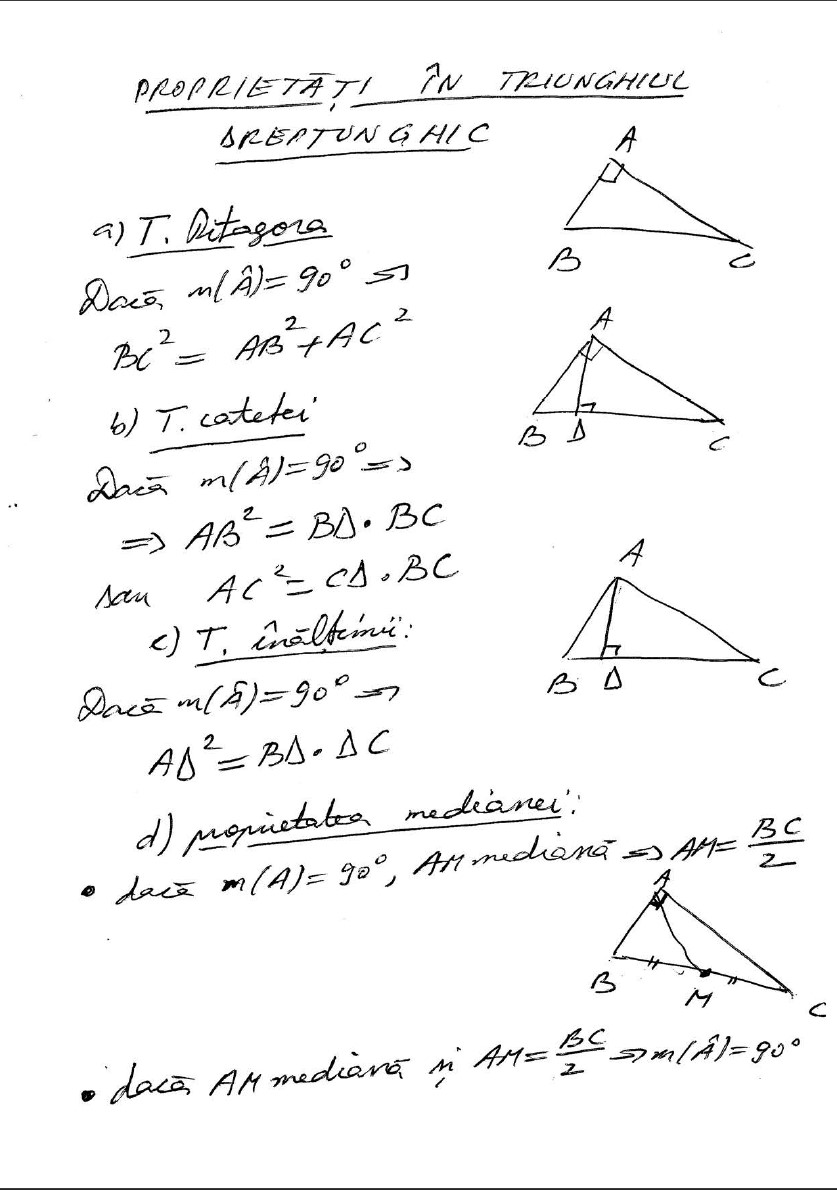 PROPRIETĂȚI ÎN TRIUNGHIUL
DREPTUNGHIC
A
B
C
a) T. Pitagora
Dacă m(Â)=90° =>
BC² = AB²+AC²
A
B D C
b) T. catetei
Dacă m(Â)=90° =>
=> AB² = BΔ·BC
sau AC² = CΔ·BC
A
B Δ C
c) T. înălțimii:
Dacă m(Â)=90° =>
AΔ² = BΔ·ΔC
d) proprietatea medianei:
• dacă m(A)=90°, AM mediană => AM= BC/2
A
B
M
C
• dacă AM mediană și AM= BC/2 => m(Â)=90°